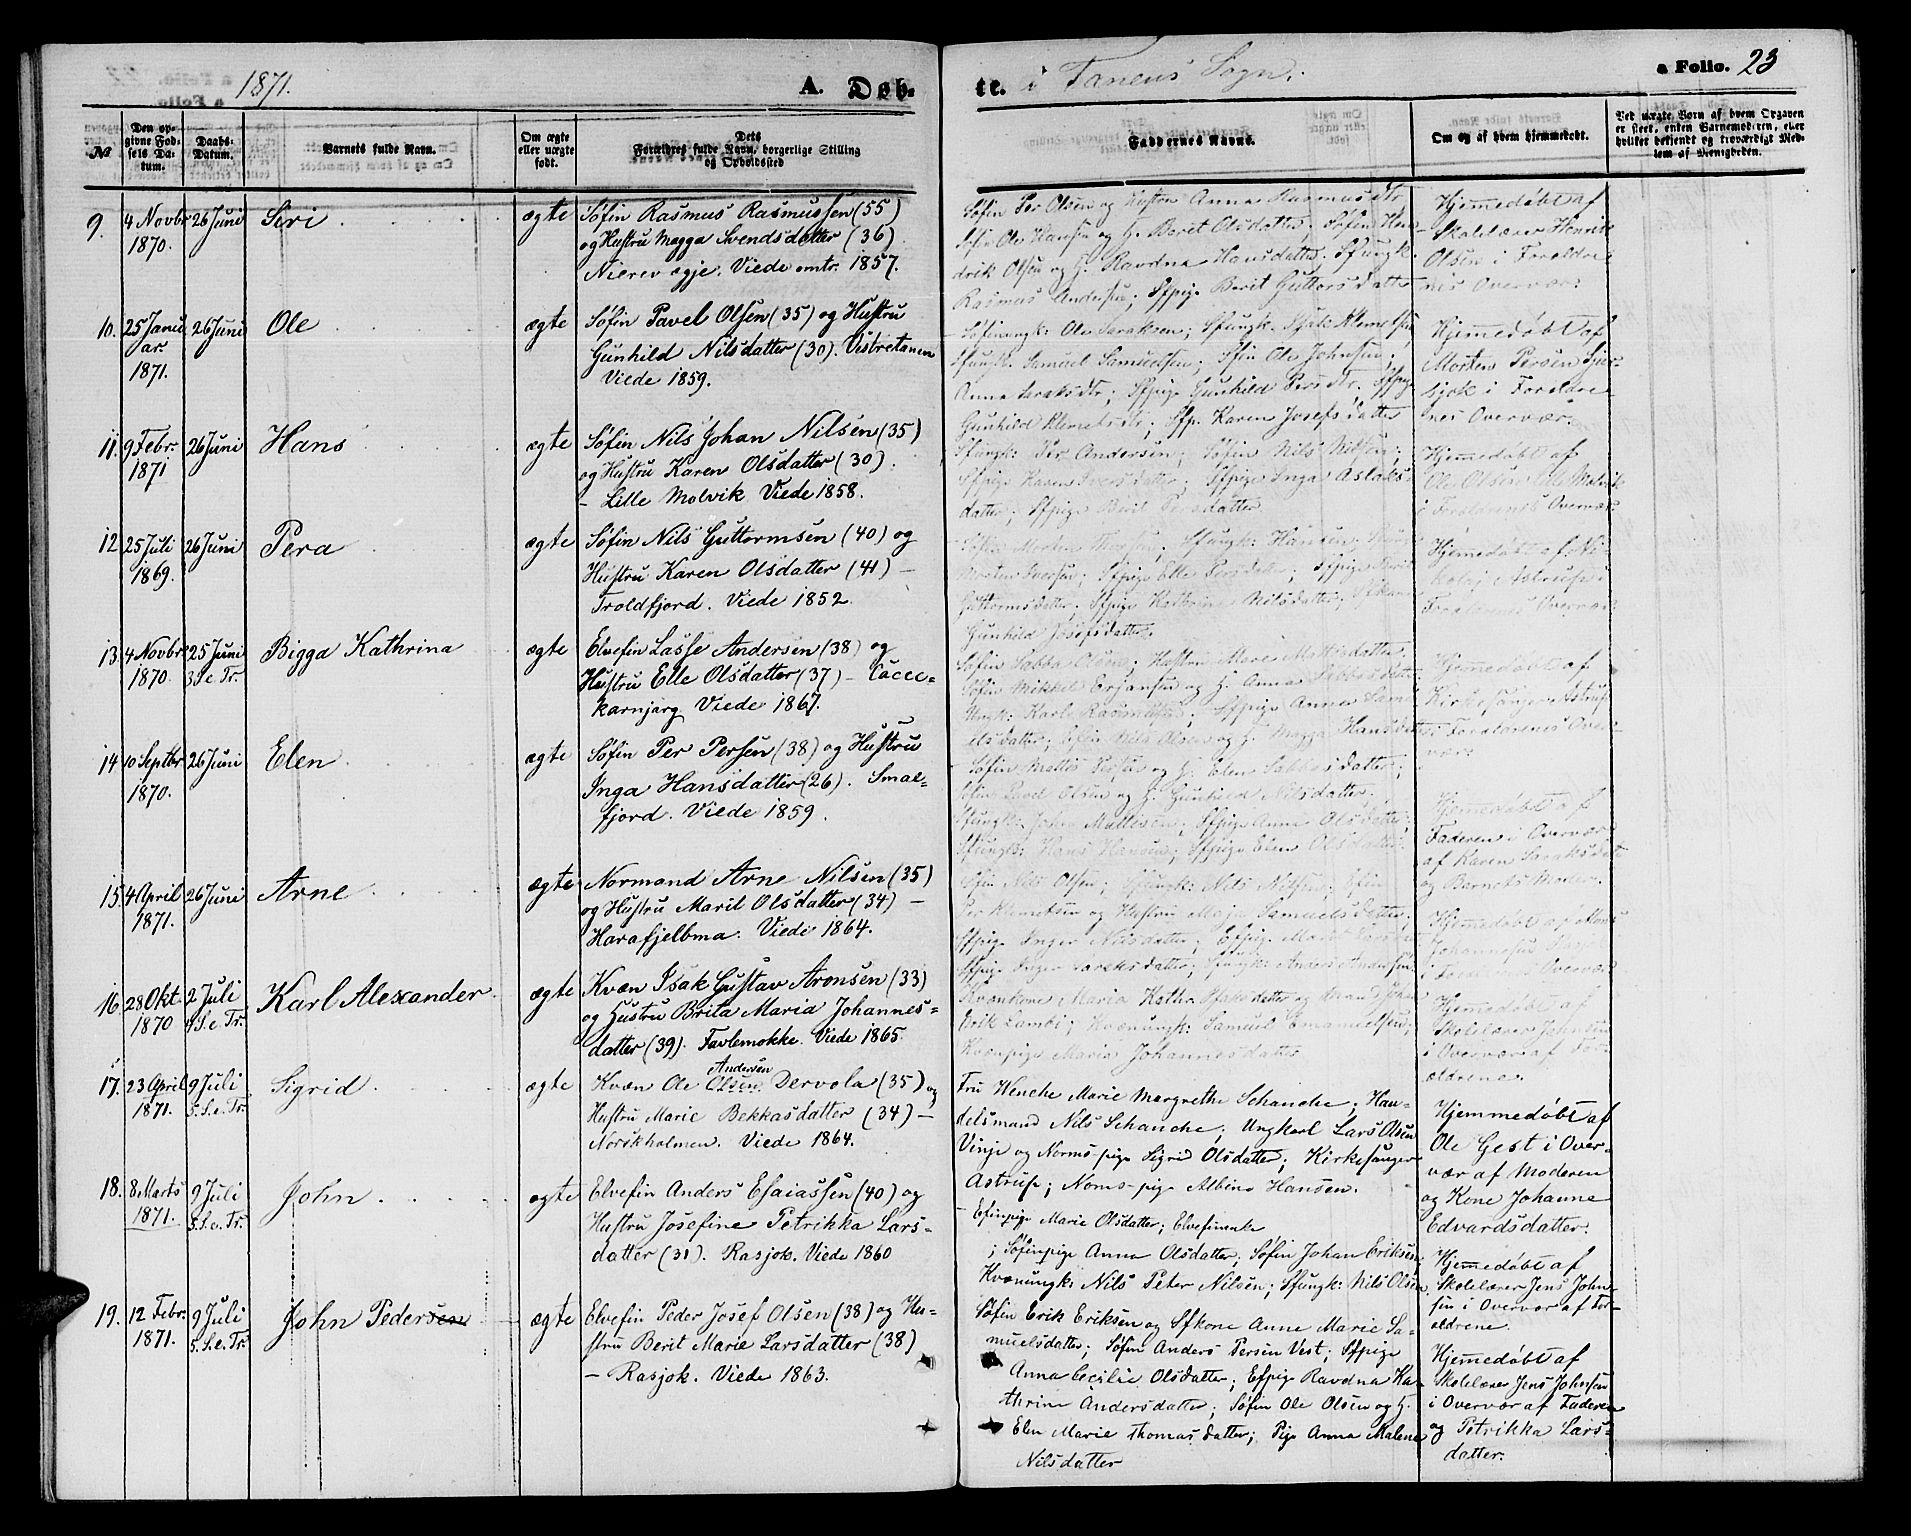 1871.
A. Døb-
te. i Tanens Sogn.
a Folio. 23
No
Den op-
givne Fød-
sels Da-
tum.
Daabs-
Datum.
Barnets fulde Navn.
Om ægte
eller uægte
født.
Dets
Forældres fulde Navn, borgerlige Stilling
og Opholdssted
Faddernes Navne.
Om og af hvem hjemmedøbt.
Ved uægte Børn af hvem Opgaven
er skeet, enten Barnemoderen, eller
hvilket bekjendt og troværdigt Med-
lem af Menigheden.
9. 4 Novbr 26 Juni Siri ægte Søfin Rasmus Rasmussen (55)
1870. og Hustru Magga Svendsdatter (36)
Nierev egje. Viede omtr. 1857.
Søfin Per Olsen og Hustru Anna Rasmusdtr,
Søfin Ole Hansen og H. Berit Olsdatter, Søfin Hen-
drik Olsen og H. Ravdna Hansdatter; Sfungk.
Rasmus Andersen; Sfpige Berit Guttorsdatter
Hjemmedøbt af
Skolelærer Henrik
Olsen i Forældre-
nes Overvær.
10. 25 Janu- 26 Juni Ole ægte Søfin Pavel Olsen (35) og Hustru
ar. Gunhild Nilsdatter (30). Vestretanen
1871. Viede 1859.
Søfinungk: Ole Saraksen; Sfungk.
Sfungk. Samuel Samuelsen; Sfin Ole Johnsen;
Anna Saraksdtr; Sfpige Gunhild Persdtr. Sfpige
Gunhild Klemetsdtr; Sfp. Karen Josefsdatter
Hjemedøbt af
Morten Persen
i Foreldre-
nes Overvær.
11. 9 Febr. 26 Juni Hans ægte Søfin Nils Johan Nilsen (35)
1871 og Hustru Karen Olsdatter (30).
- Lille Molvik Viede 1858.
Sfungk: Per Andersen; Søfin Nils Nilsen;
Sfpige Karen Iversdatter; Sfpige Inga Aslaks-
datter; Sfpige Berit Persdatter
Hjemedøbt af
Ole Olsen Lille Molvik
i Foreldrenes Overvær
12 25 Juli 26 Juni Pera ægte Søfin Nils Guttormsen (40) og
1869. Hustru Karen Olsdatter (41) -
Troldfjord. Viede 1852.
Søfin Morten
Morten Iversen; Sfpige Elle Persdatter; Sfpige Berit
Guttormsdatter, Sfpige Kathrine Nilsdatter;
Gunhild Josefsdatter.
Hjemedøbt af Ni-
kolaj Astrup i
Foreldrenes Overvær
13 4 Novbr. 25 Juni Bigga Kathrina ægte Elvefin Lasse Andersen (38) og
1870. 3 S. e. Tr. Hustru Elle Olsdatter (37) - Cacce-
karnjarg Viede 1867.
Søfin Sabba Olsen; Hustru Marie Mattisdatter.
Søfin Mikkel Ersansen og H. Anna Sabbasdatter
Ungk: Karl Rasmussen; Sfpige Anna Samu-
elsdatter; Søfin Nils Olsen og H. Magga Hansdatter
Hjemedøbt af
Kirkesanger Astrup
i Foreldrenes Over-
vær.
14 10 Septbr 26 Juni Elen ægte Søfin Per Persen (38) og Hustru
1870. Inga Hansdatter (26). Smal-
fjord. Viede 1859.
Søfin Mattis Persen og H. Elen Sabbasdatter;
Søfin Pavel Olsen og H. Gunhild Nilsdatter.
Sfungk: John Mattisen; Sfpige Anna Olsdatter;
Sfungk: Hans Hansen; Sfpige Elen Olsdatter
Hjemedøbt af
Faderen i Overvær
af Karen Saraksdatt
og Barnets Moder.
15 4 April 26 Juni Arne ægte Normand Arne Nilsen (35)
1871. og Hustru Marit Olsdatter (34) -
Harafjelbma. Viede 1864.
Sfin Nils Olsen; Sfungk: Nils Nilsen; Søfin
Per Klemetsen og Hustru Maja Samuelsdatter;
Sfpige Inger Nilsdatter; Sfpige Marit
Sfpige Inger Saraksdatter; Sfungk: Anders Andersen
Hjemedøbt af
Johannesen
i Foreldrenes Overvær
16 28 Okt 2 Juli Karl Alexander ægte Kvæn Isak Gustav Aronsen (33)
1870 4 S. e. Tr. og Hustru Brita Maria Johannes-
datter (39). Favlemokke. Viede 1865.
Kvænkone Maria Kathr. Isaksdatter og
Erik Lambi; Kvænungk: Samuel Emanuelsen;
Kvænpige Maria Johannesdatter
Hjemedøbt af
Skolelærer Johnsen
i Overvær af For-
ældrene.
17. 23 April 9 Juli Sigrid ægte Kvæn Ole Olsen Andersen Dervola (35) og
1871. 5. S. e. Tr. Hustru Marie Bekkasdatter (34) -
Norskholmen. Viede 1864.
Fru Wenche Marie Margrethe Schanche; Han-
delsmand Nils Schanche; Ungkarl Lars Olsen
Vinje og Norms-pige Sigrid Olsdatter; Kirkesanger
Astrup; Norms-pig Albine Hansen.
Hjemmedøbt af
Ole Gest i Over-
vær af Moderen
og Kone Johanne
Edvardsdatter.
18. 8 Marts 9 Juli John ægte Elvefin Anders Esaiassen (40) og
1871. 5. S. e. Tr. Hustru Josefine Petrikka Lars-
datter (31). Rasjok. Viede 1860
Efinpige Marie Olsdatter; Elvefinenke
; Søfinpige Anna Olsdatter; Søfin Johan Eriksen;
Kvænungk: Nils Peter Nilsen; Sfungk: Nils Olsen
Hjemedøbt af
Skolelærer Jens John-
sen i Overvær af For-
ældrene.
19. 12 Febr. 9 Juli John Pedersen ægte Elvefin Peder Josef Olsen (38) og Hu-
1871. 5. S. e. Tr. stru Berit Marie Larsdatter (38)
- Rasjok. Viede 1863.
Søfin Erik Eriksen og Sfkone Anne Marie Sa-
muelsdatter; Søfin Anders Persen Vest; Sfpige
Anna Cecilie Olsdatter; Efpige Ravdna Ka-
thrine Andersdatter; Søfin Ole Olsen og H.
Elen Marie Thomasdatter; Pige Anna Malene
Nilsdatter
Hjemedøbt af
Skolelærer Jens Johnsen
i Overvær af Faderen
og Petrikka Lars-
datter.